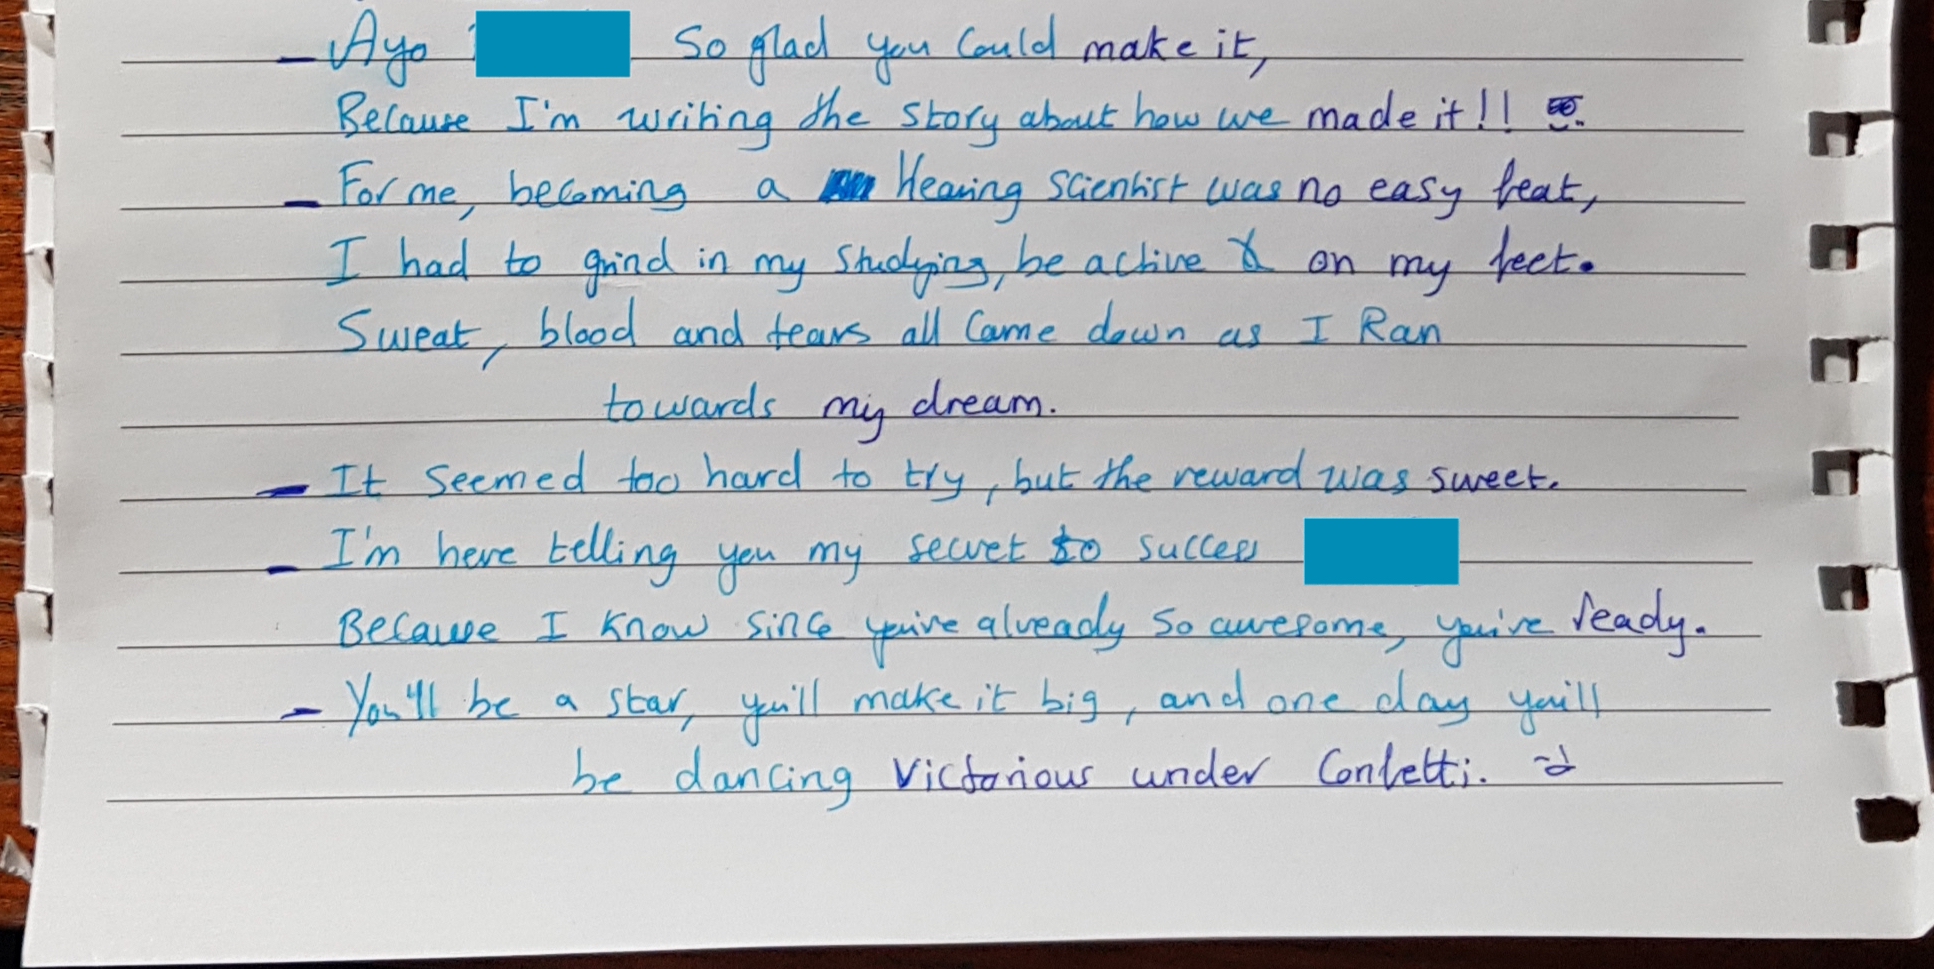 - Ayo So glad you could make it,
Because I'm writing the story about how we made it!!
- For me, becoming a Hearing scientist was no easy feat,
I had to grind in my studying, be active & on my feet.
Sweat, blood and tears all came down as I Ran
towards my dream.
- It seemed too hard to try, but the reward was sweet.
- I'm here telling you my secret to success
Because I know since you're already so awesome, you're ready.
- You'll be a star, you'll make it big, and one day you'll
be dancing victorious under confetti.